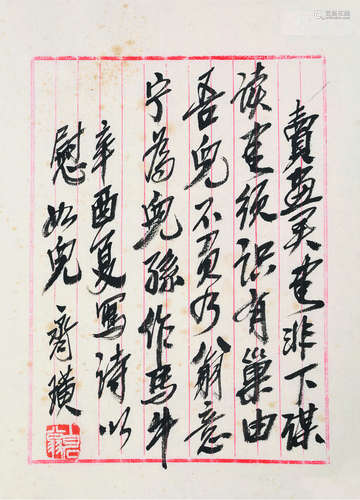 賣畫買書非下謀
读書須识有巢由
吾兒不負乃翁意
宁為兒孫作馬牛
辛酉夏寫诗以
慰如兒 齊璜